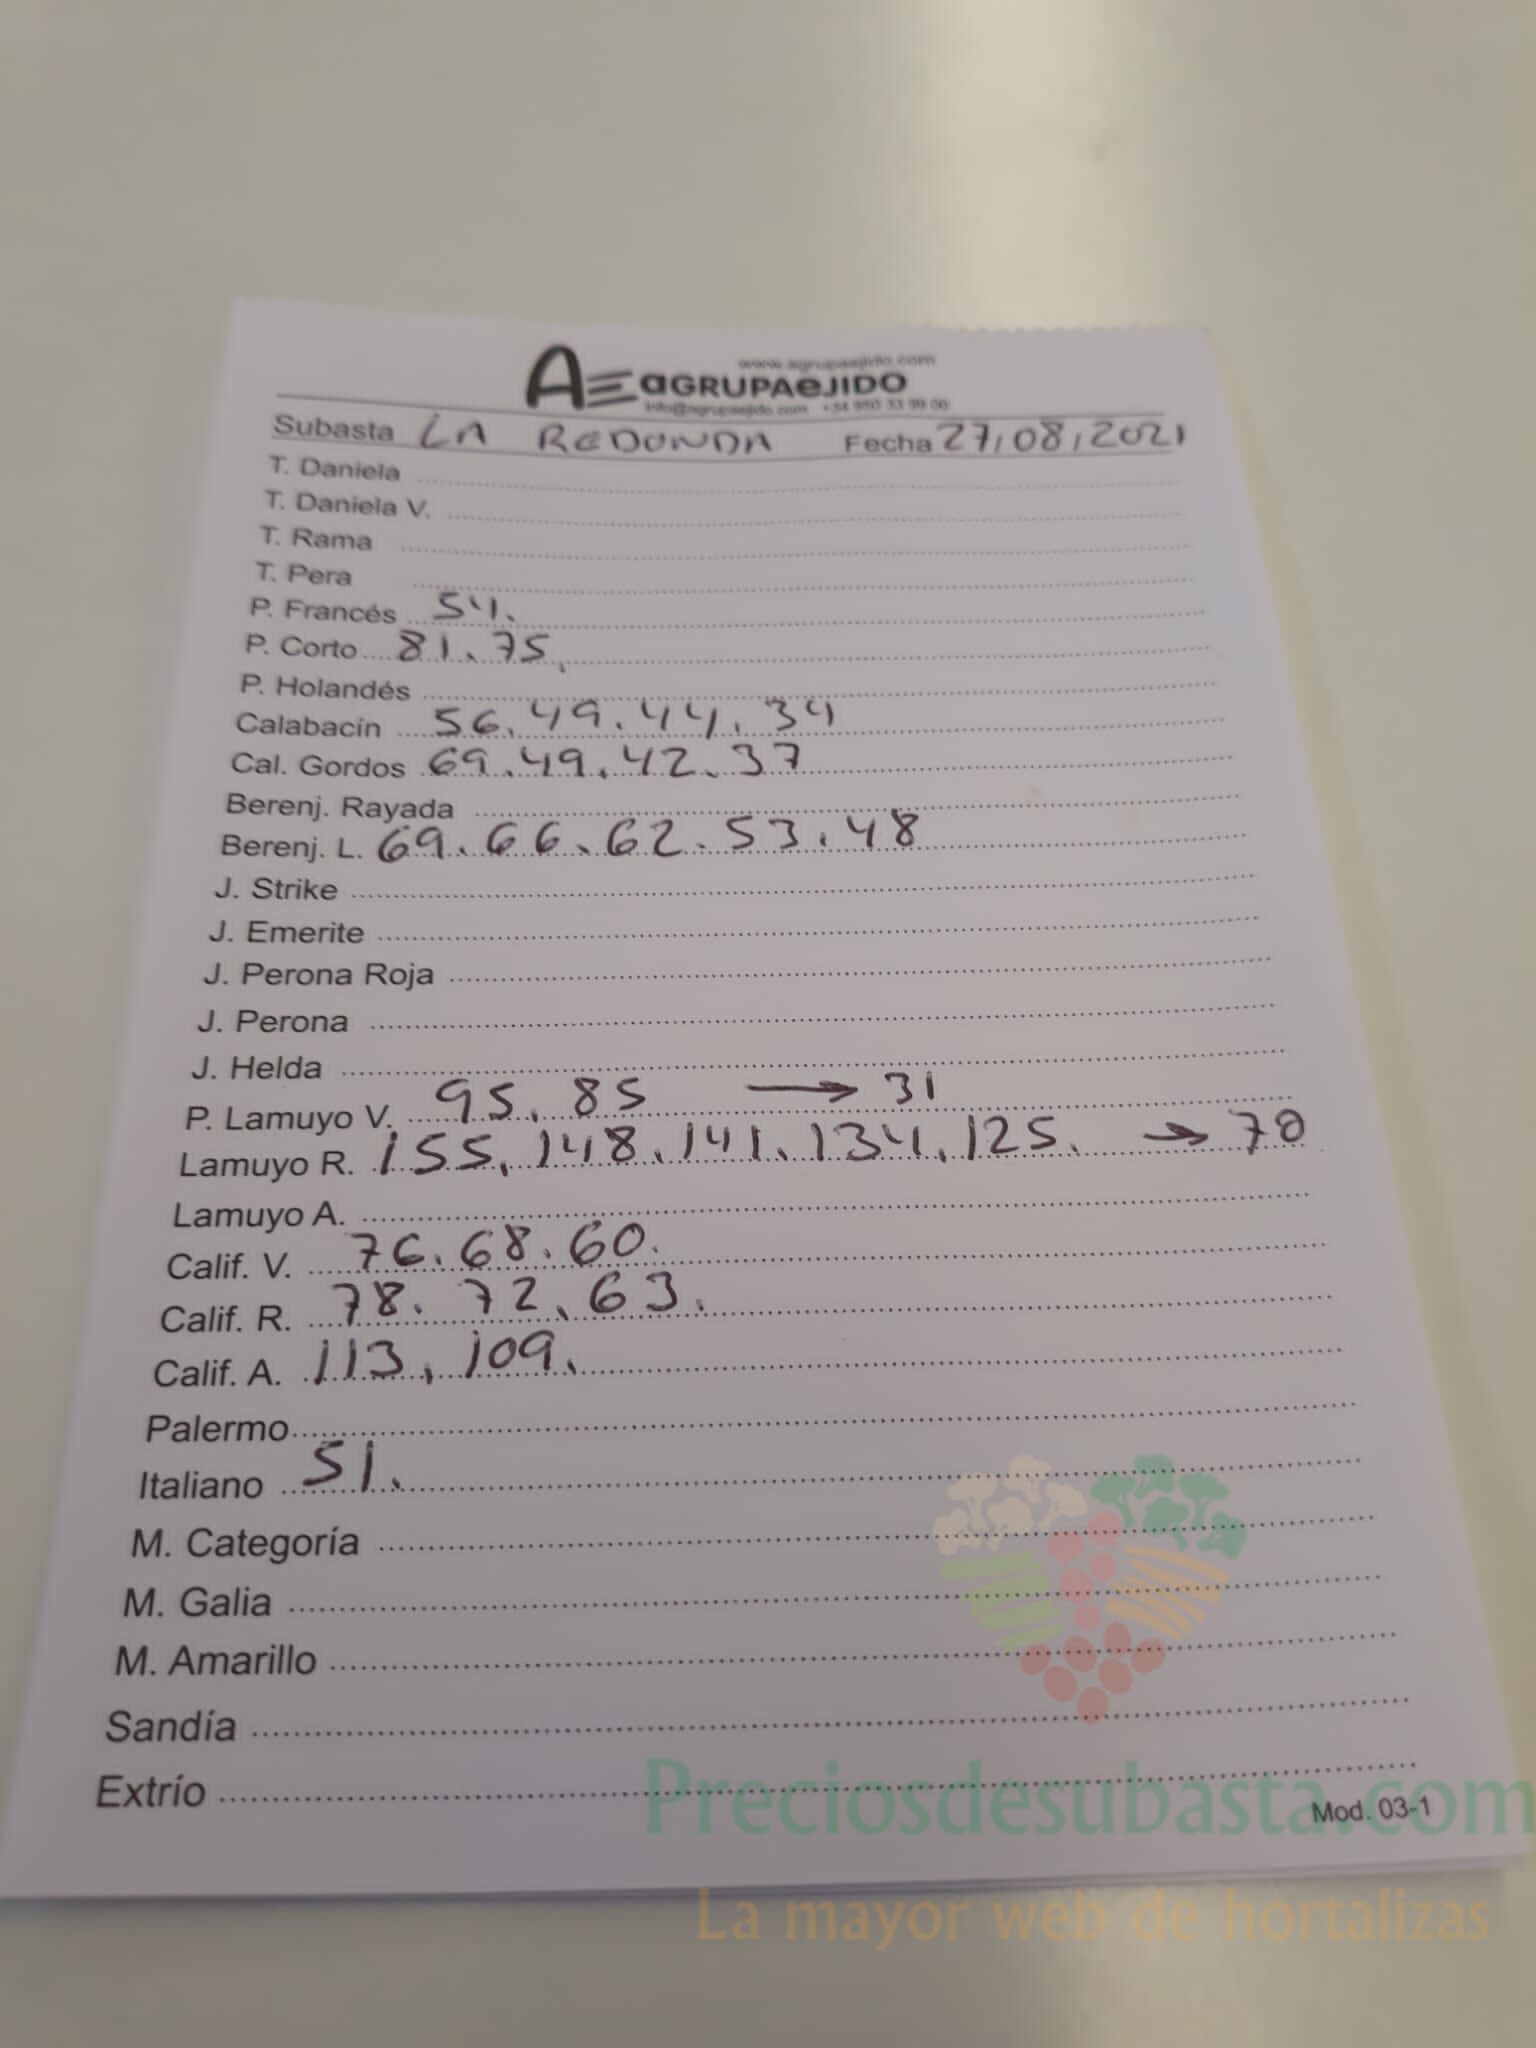 www.agrupaejido.com
AE aGRUPAeJIDO
info@agrupaejido.com +34 950 33 99 00
Subasta LA REDONDA Fecha 27/08/2021
T. Daniela
T. Daniela V.
T. Rama
T. Pera
P. Francés 54.
P. Corto 81.75.
P. Holandés
Calabacín 56.49.44.34
Cal. Gordos 69.49.42.37
Berenj. Rayada
Berenj. L. 69.66.62.53.48
J. Strike
J. Emerite
J. Perona Roja
J. Perona
J. Helda
P. Lamuyo V. 95.85 → 31
Lamuyo R. 155.148.141.134.125. → 70
Lamuyo A.
Calif. V. 76.68.60.
Calif. R. 78.72.63.
Calif. A. 113.109.
Palermo
Italiano 51.
M. Categoría
M. Galia
M. Amarillo
Sandía
Extrío
Preciosdesubasta.com
Mod. 03-1
La mayor web de hortalizas